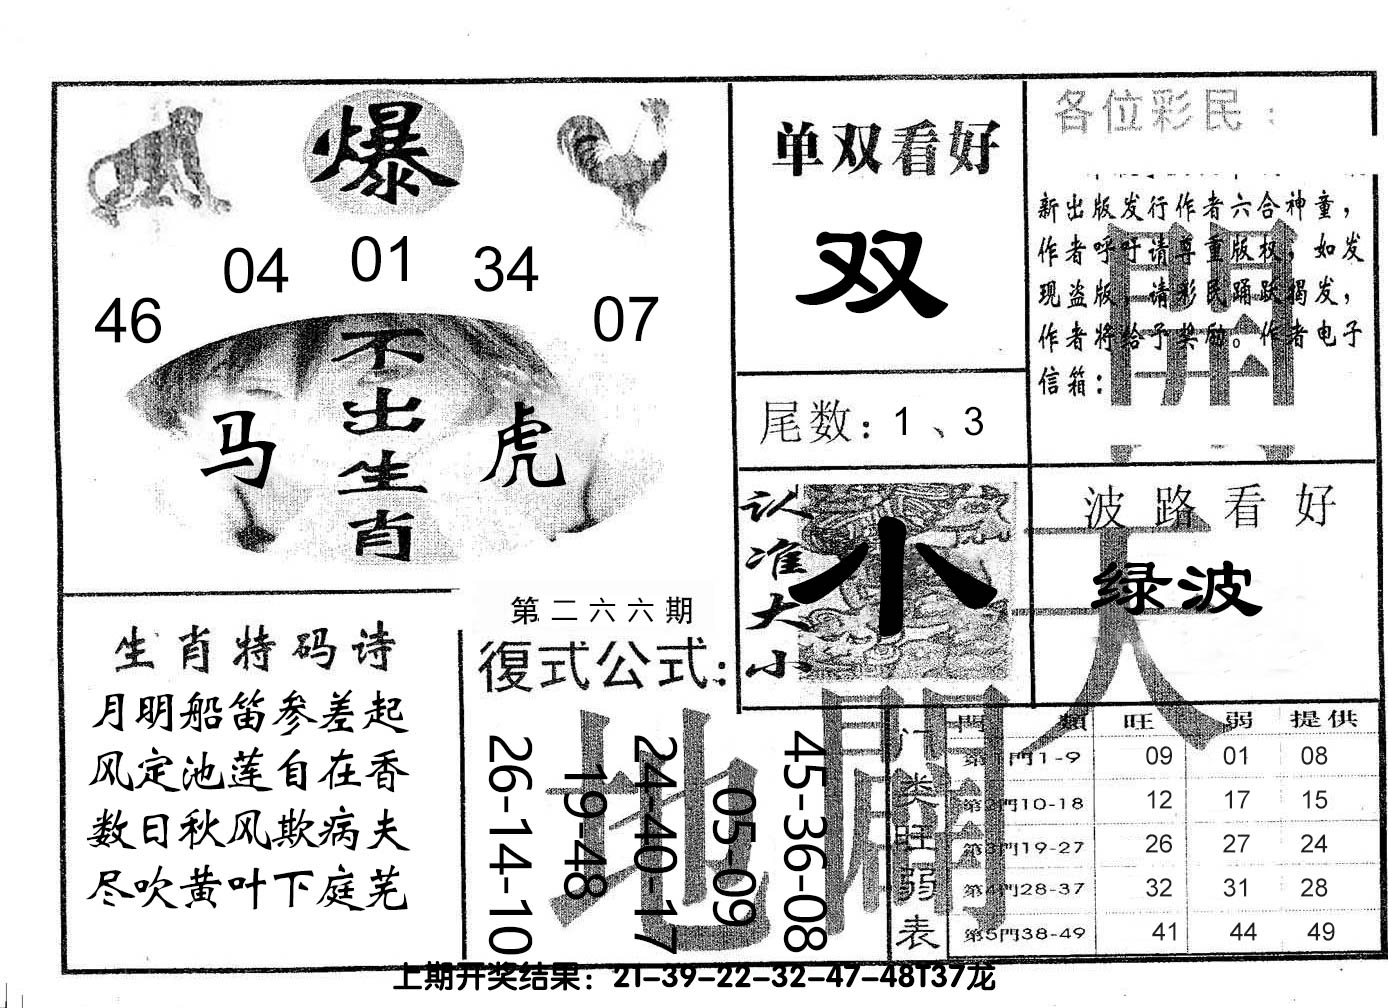 爆
04 01 34
46 07
不出生肖
马 虎
单双看好
双
尾数：1、3
各位彩民：
新出版发行作者六合神童，
作者呼吁请尊重版权，如发
现盗版，请彩民踊跃揭发，
作者将给予奖励。作者电子
信箱：
認准大小
小
波路看好
绿波
天
開
地
闢
生肖特码诗
月明船笛参差起
风定池莲自在香
数日秋风欺病夫
尽吹黄叶下庭芜
第二六六期
復式公式：
26-14-10
19-48
24-40-17
05-09
45-36-08
门类旺弱表
門類 旺 弱 提供
第1門1-9 09 01 08
第2門10-18 12 17 15
第3門19-27 26 27 24
第4門28-37 32 31 28
第5門38-49 41 44 49
上期开奖结果：21-39-22-32-47-48T37龙